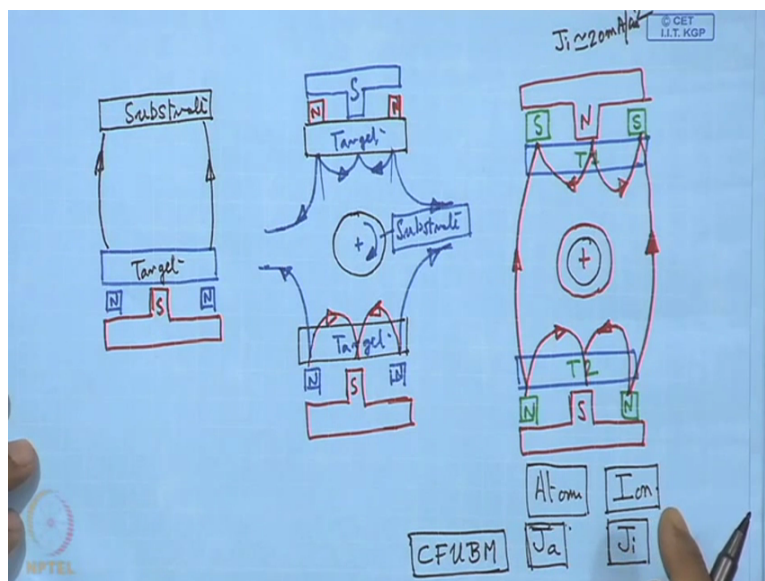 Ji ≃ 20mA/cm²
© CET
I.I.T. KGP
Substrate
Target
N S N
S
N N
Target
+
Substrate
Target
N S N
N
S S
T1
+
T2
N S N
Atom Ion
CFUBM Ja Ji
NPTEL